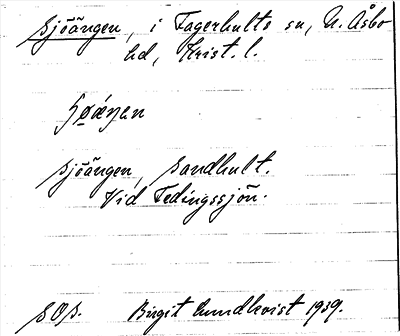 Sjöängen, i Fagerhults sn, N. Åsbo
hd, Krist. l.
Sjöängen, Sandhult.
Vid Fedingssjön.
SOB. Birgit Lundkvist 1939.